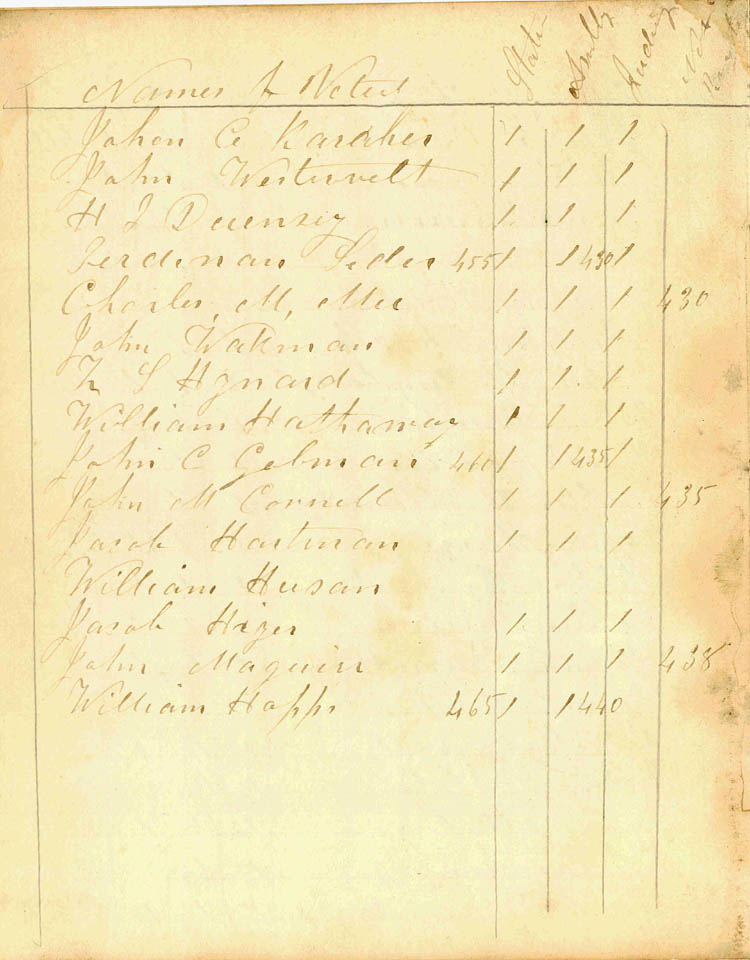 State
Judicy
Names of Voters
John C Karcher 1 1 1
John Westervelt 1 1 1
H J 1 1 1
Ferdinan 455 1 1 430 1
Charles M, Mee 1 1 1 430
John Wakman 1 1 1
S Hynard 1 1 1
William Hathaway 1 1 1
John C Gelman 460 1 1 435 1
John M Cornell 1 1 1 435
Jacob Hartman 1 1 1
William Husan
Jacob Hizer 1 1 1
John Maguin 1 1 1 438
William Happs 465 1 1 440